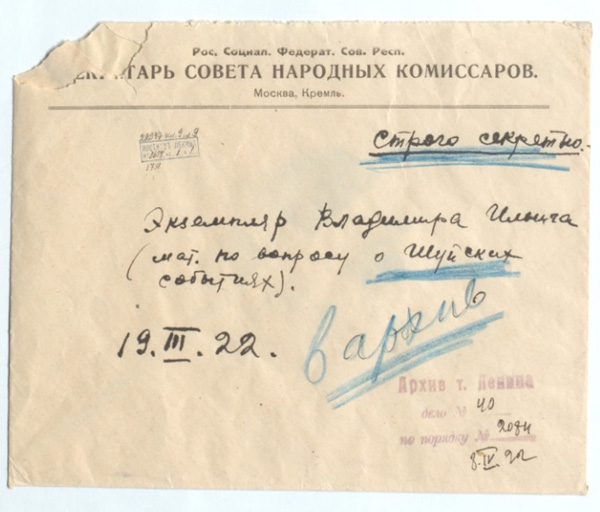 Рос. Социал. Федерат. Сов. Респ.
ЕКРЕТАРЬ СОВЕТА НАРОДНЫХ КОМИССАРОВ.
Москва, Кремль.
Строго секретно.
Экземпляр Владимира Ильича
(мат. по вопросу о Шуйских
событиях).
19.III.22.
в архив
Архив т. Ленина
дело № 40
по порядку № 2084
8.IV.22